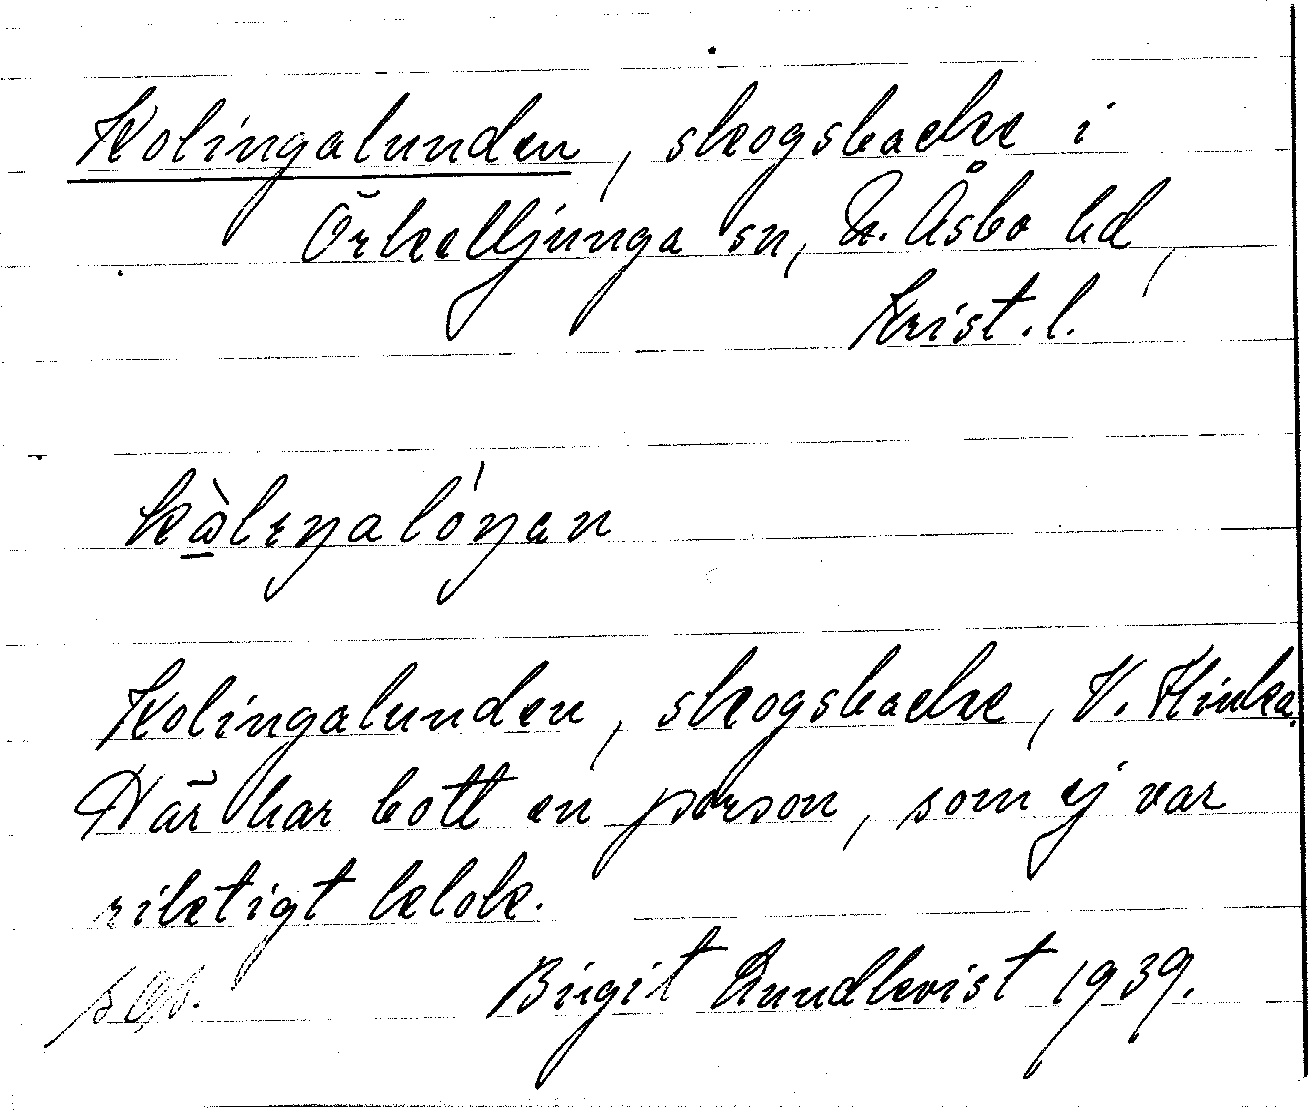 Kolingalunden, skogsbacke i
Örkelljunga sn, N. Åsbo hd,
Krist. l.
Kolingalunden, skogsbacke, V. Hinka.
Här har bott en person, som ej var
riktigt klok.
Birgit Lundkvist 1939.